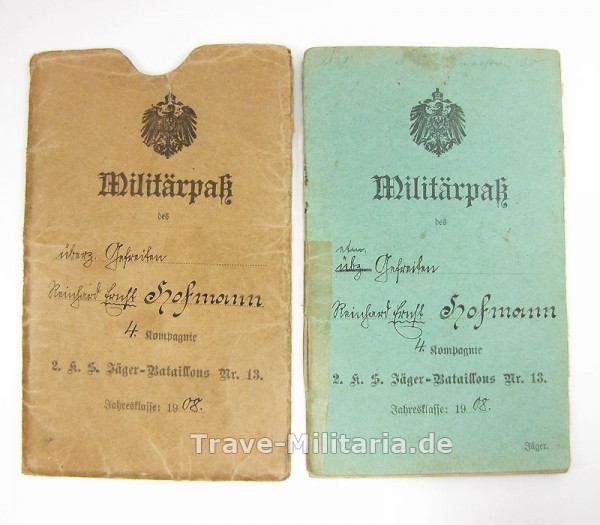 Militärpaß
des
überz. Gefreiten
Reinhard Ernst Hofmann
4. Kompagnie
2. K. S. Jäger-Bataillons Nr. 13.
Jahresklasse: 1908.
Militärpaß
des
etm.
übz. Gefreiten
Reinhard Ernst Hofmann
4. Kompagnie
2. K. S. Jäger-Bataillons Nr. 13.
Jahresklasse: 1908.
Jäger.
Trave-Militaria.de